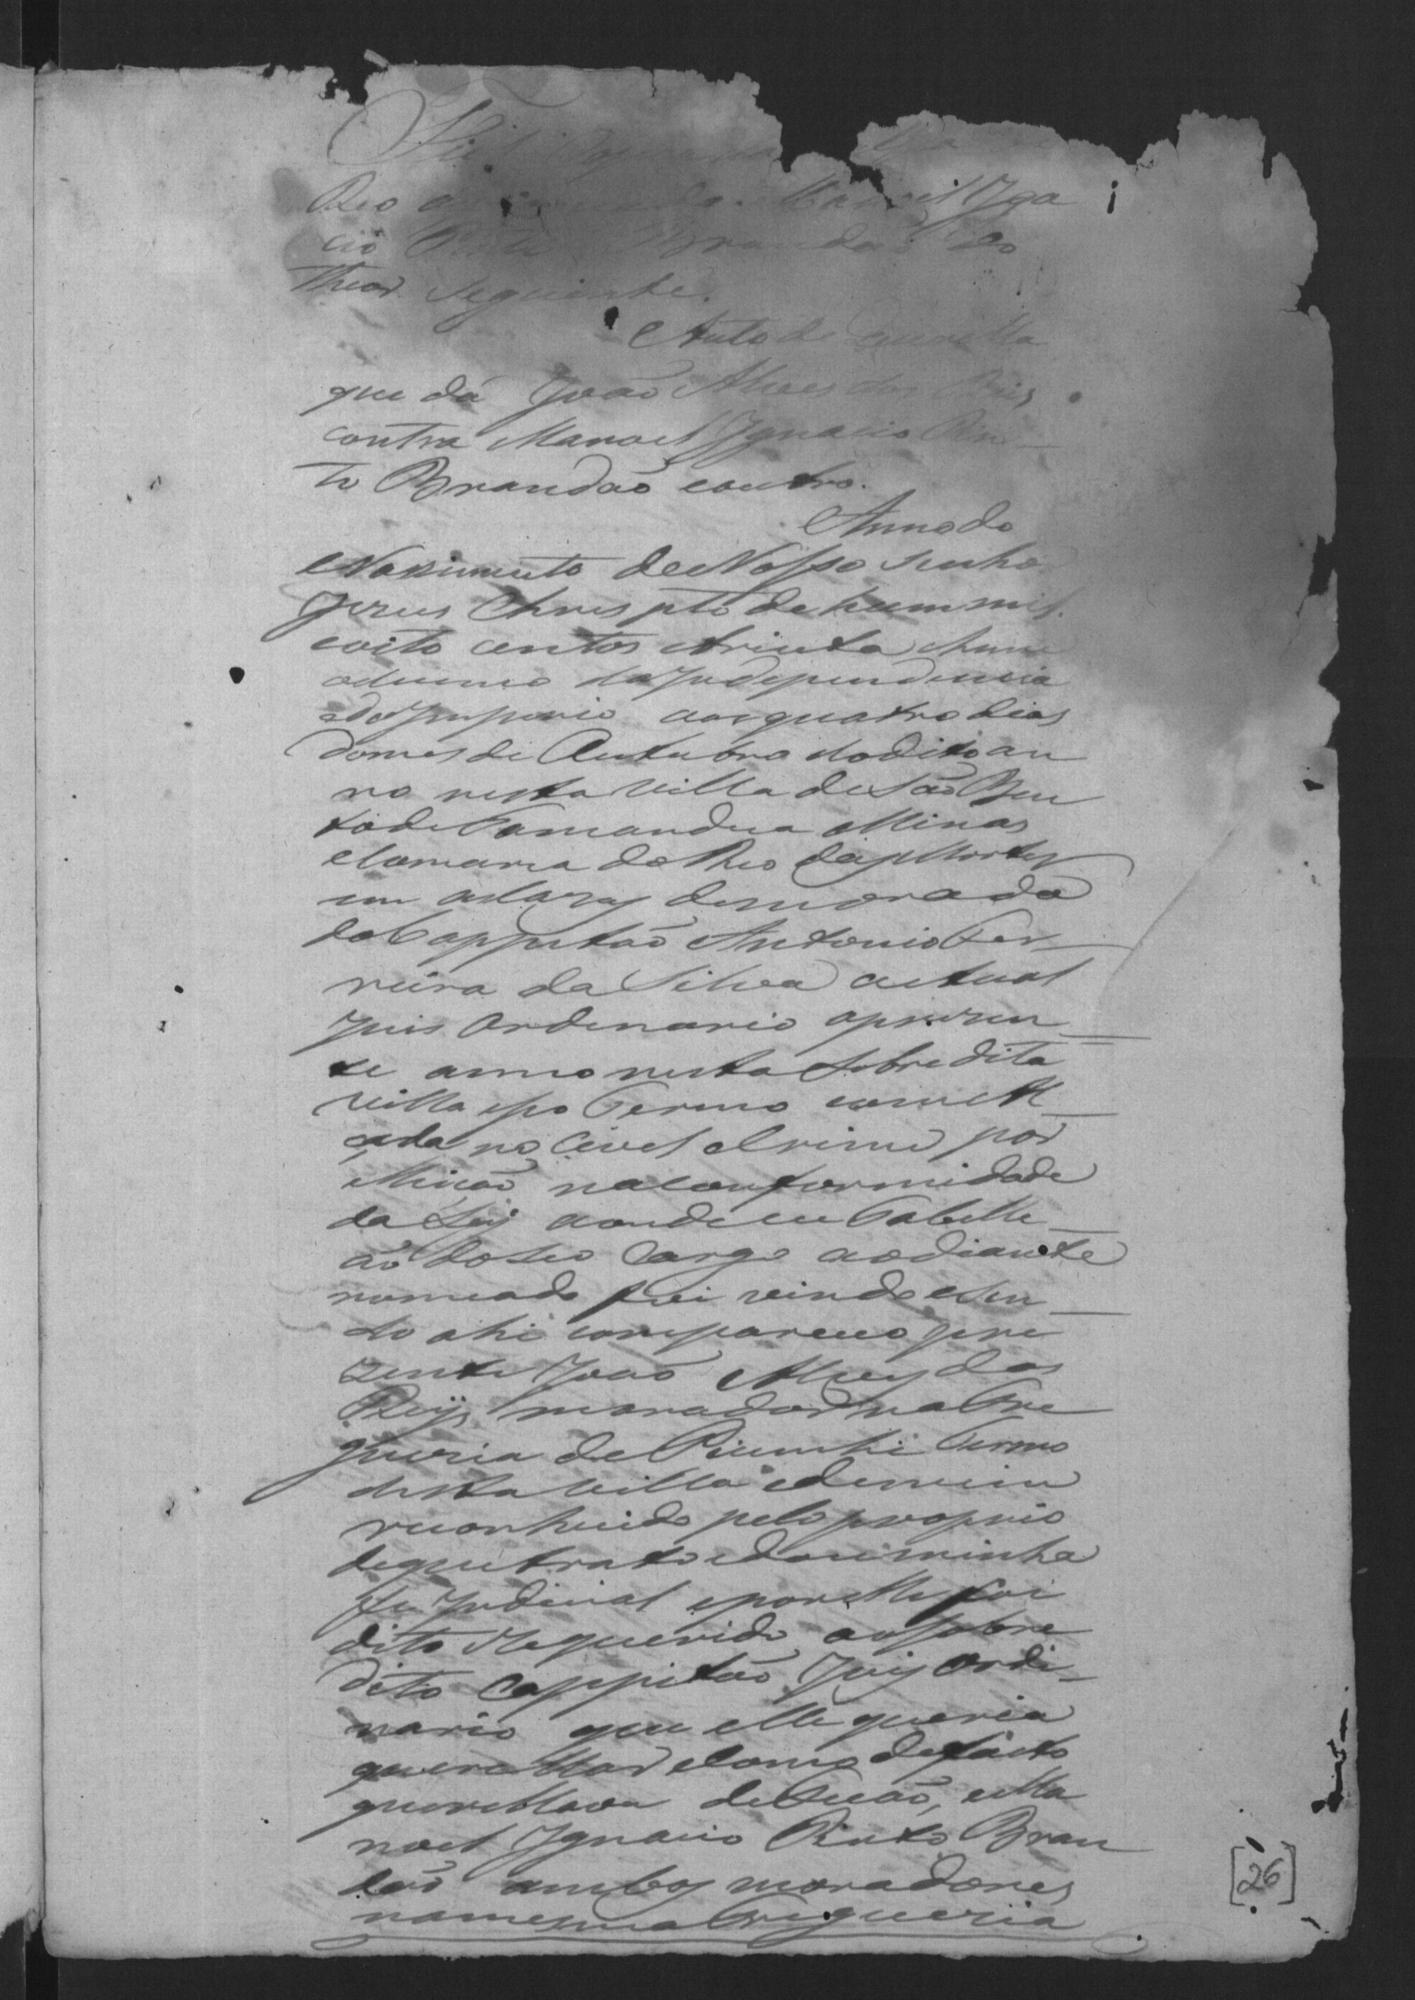 Reo Manoel Igna
cio Brandaõ do
theor seguinte.
Auto de Querella
que dá Joaõ Alves dos Reis
contra Manoel Ignacio Pin-
to Brandaõ eoutro.
Anno do
Nascimento de Nosso Senho
Jezus Christo de hum mil
eoito centos etrinta ehum
da Independencia
edo Imperio aos quatro dias
domes de Outubro dodito an
no nesta Villa de Saõ Ben
to de Tamandua Minas
eComarca do Rio das Mortes
em cazas demorada
do Cappitaõ Antonio Fer-
reira da Silva actual
Juis Ordenario oprezen-
te anno nesta sobredita
Villa eseo Termo com
no Civel eCrime por
na conformidade
da Ley aonde eu Tabelli-
aõ doseo Cargo aodiante
nomeado fui vindo esen-
do ahi compareceo pre
zente Joaõ Alves dos
Reys morador na Fre
guezia de Piumhi Termo
desta Villa edemim
reconhecido pelo proprio
dequetrato edou minha
fe Judicial eporelle foi
dito erequerido aosobre
dito Cappitaõ Juis Ordi-
nario que elle queria
querellar ecomo defacto
querellava de eMa
noel Ignacio Pinto Bran
daõ ambos moradores
namesma Freguezia
[26]